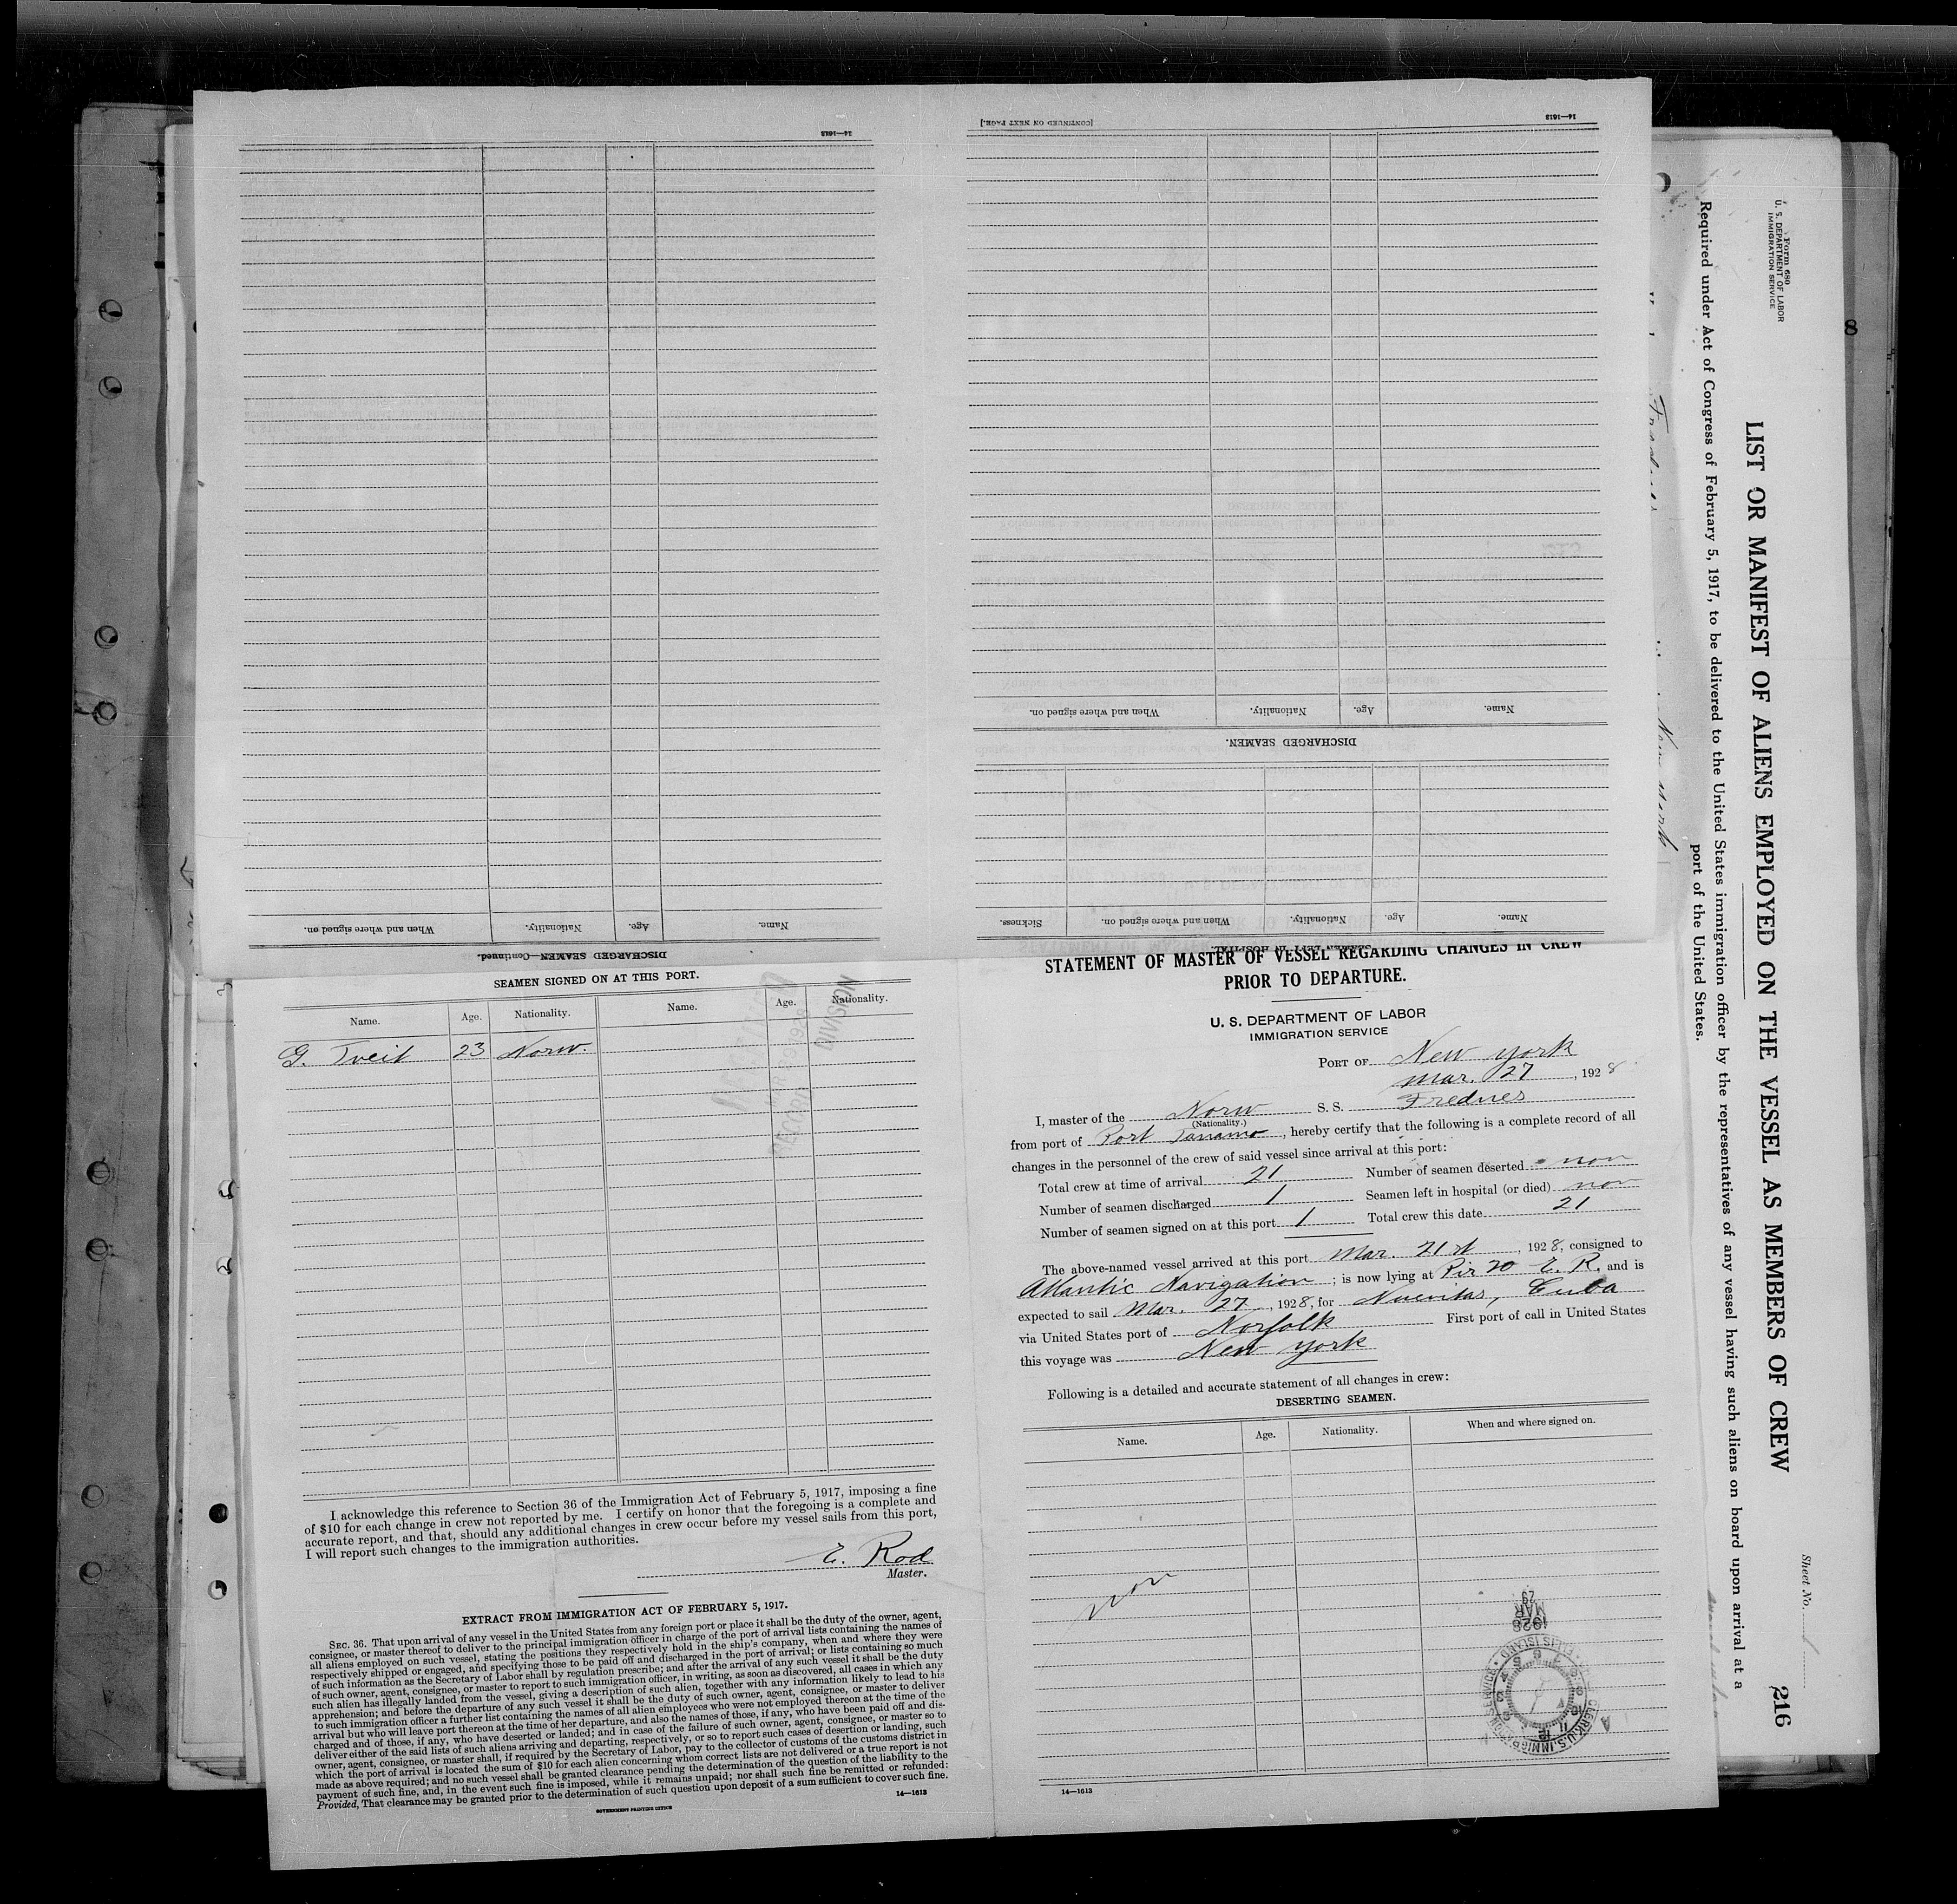 14—1613
[CONTINUED ON NEXT PAGE.]
14—1613
When and where signed on.
Nationality.
Age.
Name.
DISCHARGED SEAMEN.
Sickness.
When and where signed on.
Nationality.
Age.
Name.
SEAMEN LEFT IN HOSPITAL.
When and where signed on.
Nationality.
Age.
Name.
DISCHARGED SEAMEN—Continued.
SEAMEN SIGNED ON AT THIS PORT.
Name. Age. Nationality. Name. Age. Nationality.
G. Tveit 23 Norw.
RECORD DIVISION
I acknowledge this reference to Section 36 of the Immigration Act of February 5, 1917, imposing a fine
of $10 for each change in crew not reported by me. I certify on honor that the foregoing is a complete and
accurate report, and that, should any additional changes in crew occur before my vessel sails from this port,
I will report such changes to the immigration authorities.
E. Rod
Master.
EXTRACT FROM IMMIGRATION ACT OF FEBRUARY 5, 1917.
SEC. 36. That upon arrival of any vessel in the United States from any foreign port or place it shall be the duty of the owner, agent,
consignee, or master thereof to deliver to the principal immigration officer in charge of the port of arrival lists containing the names of
all aliens employed on such vessel, stating the positions they respectively hold in the ship's company, when and where they were
respectively shipped or engaged, and specifying those to be paid off and discharged in the port of arrival; or lists containing so much
of such information as the Secretary of Labor shall by regulation prescribe; and after the arrival of any such vessel it shall be the duty
of such owner, agent, consignee, or master to report to such immigration officer, in writing, as soon as discovered, all cases in which any
such alien has illegally landed from the vessel, giving a description of such alien, together with any information likely to lead to his
apprehension; and before the departure of any such vessel it shall be the duty of such owner, agent, consignee, or master to deliver
to such immigration officer a further list containing the names of all alien employees who were not employed thereon at the time of the
arrival but who will leave port thereon at the time of her departure, and also the names of those, if any, who have been paid off and dis-
charged and of those, if any, who have deserted or landed; and in case of the failure of such owner, agent, consignee, or master so to
deliver either of the said lists of such aliens arriving and departing, respectively, or so to report such cases of desertion or landing, such
owner, agent, consignee, or master shall, if required by the Secretary of Labor, pay to the collector of customs of the customs district in
which the port of arrival is located the sum of $10 for each alien concerning whom correct lists are not delivered or a true report is not
made as above required; and no such vessel shall be granted clearance pending the determination of the question of the liability to the
payment of such fine, and, in the event such fine is imposed, while it remains unpaid; nor shall such fine be remitted or refunded:
Provided, That clearance may be granted prior to the determination of such question upon deposit of a sum sufficient to cover such fine.
GOVERNMENT PRINTING OFFICE
14—1613
STATEMENT OF MASTER OF VESSEL REGARDING CHANGES IN CREW
PRIOR TO DEPARTURE.
U. S. DEPARTMENT OF LABOR
IMMIGRATION SERVICE
PORT OF New York
Mar. 27, 1928
I, master of the Norw S. S. Frednes
(Nationality.)
from port of Port Tanamo, hereby certify that the following is a complete record of all
changes in the personnel of the crew of said vessel since arrival at this port:
Total crew at time of arrival 21 Number of seamen deserted non
Number of seamen discharged 1 Seamen left in hospital (or died) non
Number of seamen signed on at this port 1 Total crew this date 21
The above-named vessel arrived at this port Mar. 21st, 1928, consigned to
Atlantic Navigation; is now lying at Pir 20 E. R. and is
expected to sail Mar. 27, 1928, for Nuevitas, Cuba
via United States port of Norfolk First port of call in United States
this voyage was New York
Following is a detailed and accurate statement of all changes in crew:
DESERTING SEAMEN.
Name. Age. Nationality. When and where signed on.
non
1928
MAR
29
14—1613
Form 680
U. S. DEPARTMENT OF LABOR
IMMIGRATION SERVICE
Sheet No.
216
LIST OR MANIFEST OF ALIENS EMPLOYED ON THE VESSEL AS MEMBERS OF CREW
Required under Act of Congress of February 5, 1917, to be delivered to the United States immigration officer by the representatives of any vessel having such aliens on board upon arrival at a
port of the United States.
New York
8